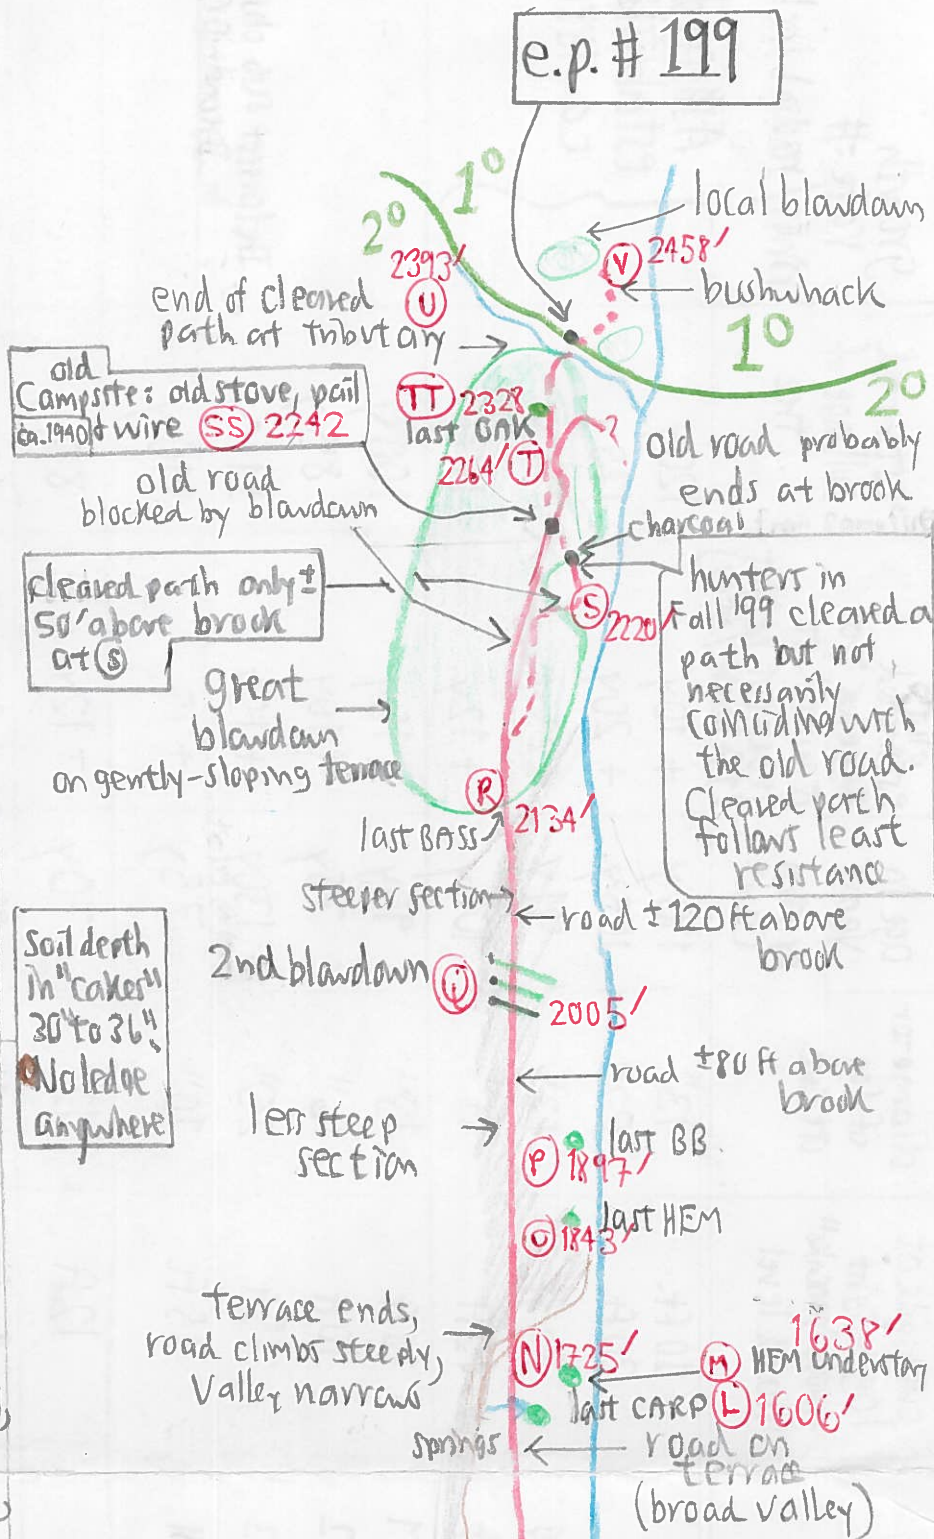 e.p. # 199
1°
2°
local blowdown
2393'
U
V 2458'
bushwhack
end of cleared
path at tributary
1°
2°
old
Campsite: old stove, pail
ca. 1940 & wire SS 2242
TT 2328
last OAK
2264' T
?
old road probably
ends at brook
old road
blocked by blowdown
charcoal
cleared path only ±
50' above brook
at S
S
2220'
hunters in
Fall '99 cleared a
path but not
necessarily
coinciding with
the old road.
Cleared path
follows least
resistance
great
blowdown
on gently-sloping terrace
R
last BASS
2134'
steeper section
road ± 120 ft above
brook
soil depth
in "cakes"
30" to 36".
No ledge
anywhere
2nd blowdown Q
2005'
road ± 80 ft above
brook
less steep
section
last BB.
P 1897'
last HEM
O 1843'
terrace ends,
road climbs steeply,
Valley narrows
1638'
N 1725'
M HEM understory
last CARP L 1606'
springs
road on
terrace
(broad valley)